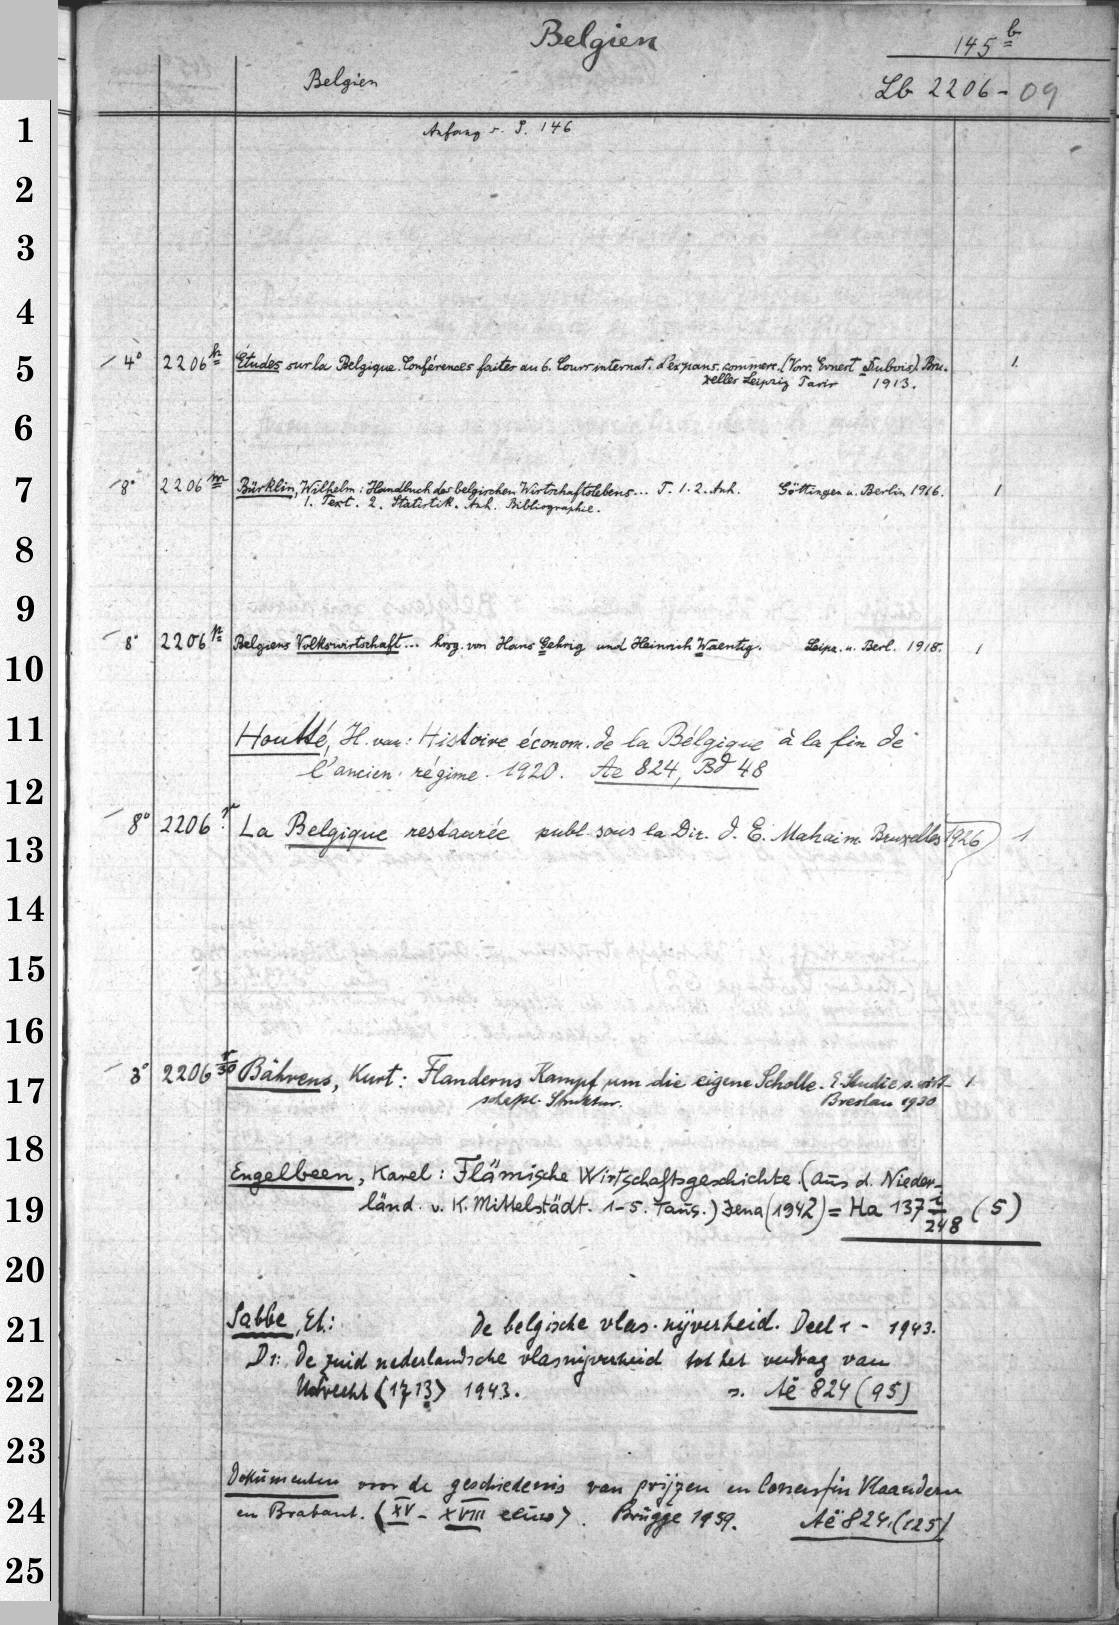 Belgien
145 b
Belgien
Lb 2206-09
1
Anfang s. S. 146
2
3
4
5
4° 2206 k Études sur la Belgique. Conférences faites au 6. Cours internat. d'expans. commerc. (Vorr. Ernest Dubois). Bru- 1.
xelles Leipzig Paris 1913.
6
7
8° 2206 m Bürklin, Wilhelm: Handbuch des belgischen Wirtschaftslebens... T. 1. 2. Anh. Göttingen u. Berlin 1916. 1
1. Text. 2. Statistik. Anh. Bibliographie.
8
9
8° 2206 p Belgiens Volkswirtschaft... hrsg. von Hans Gehrig und Heinrich Waentig. Leipz. u. Berl. 1918. 1
10
11
Houtte, H. van: Histoire économ. de la Belgique à la fin de
l'ancien régime. 1920. Ae 824, Bd 48
12
8° 2206 r La Belgique restaurée publ. sous la Dir. d. E. Mahaim. Bruxelles 1926 1
13
14
15
16
8° 2206 r/30 Bährens, Kurt: Flanderns Kampf um die eigene Scholle. E. Studie s. wirt- 1
schaftl. Struktur. Breslau 1930
17
18
Engelbeen, Karel: Flämische Wirtschaftsgeschichte. (Aus d. Nieder-
länd. v. K. Mittelstädt. 1-5. Taus.) Jena (1942) = Ha 137 i/248 (5)
19
20
21
Sabbe, Et.: De belgische vlas-nijverheid. Deel 1 - 1943.
D1: De zuid nederlandsche vlasnijverheid tot het verdrag van
Utrecht (1713) 1943. s. Aë 824 (95)
22
23
Dokumenten voor de geschiedenis van prijzen en lonen in Vlaanderen
en Brabant. (XV - XVIII eeuw). Brügge 1959. Aë 824. (125)
24
25